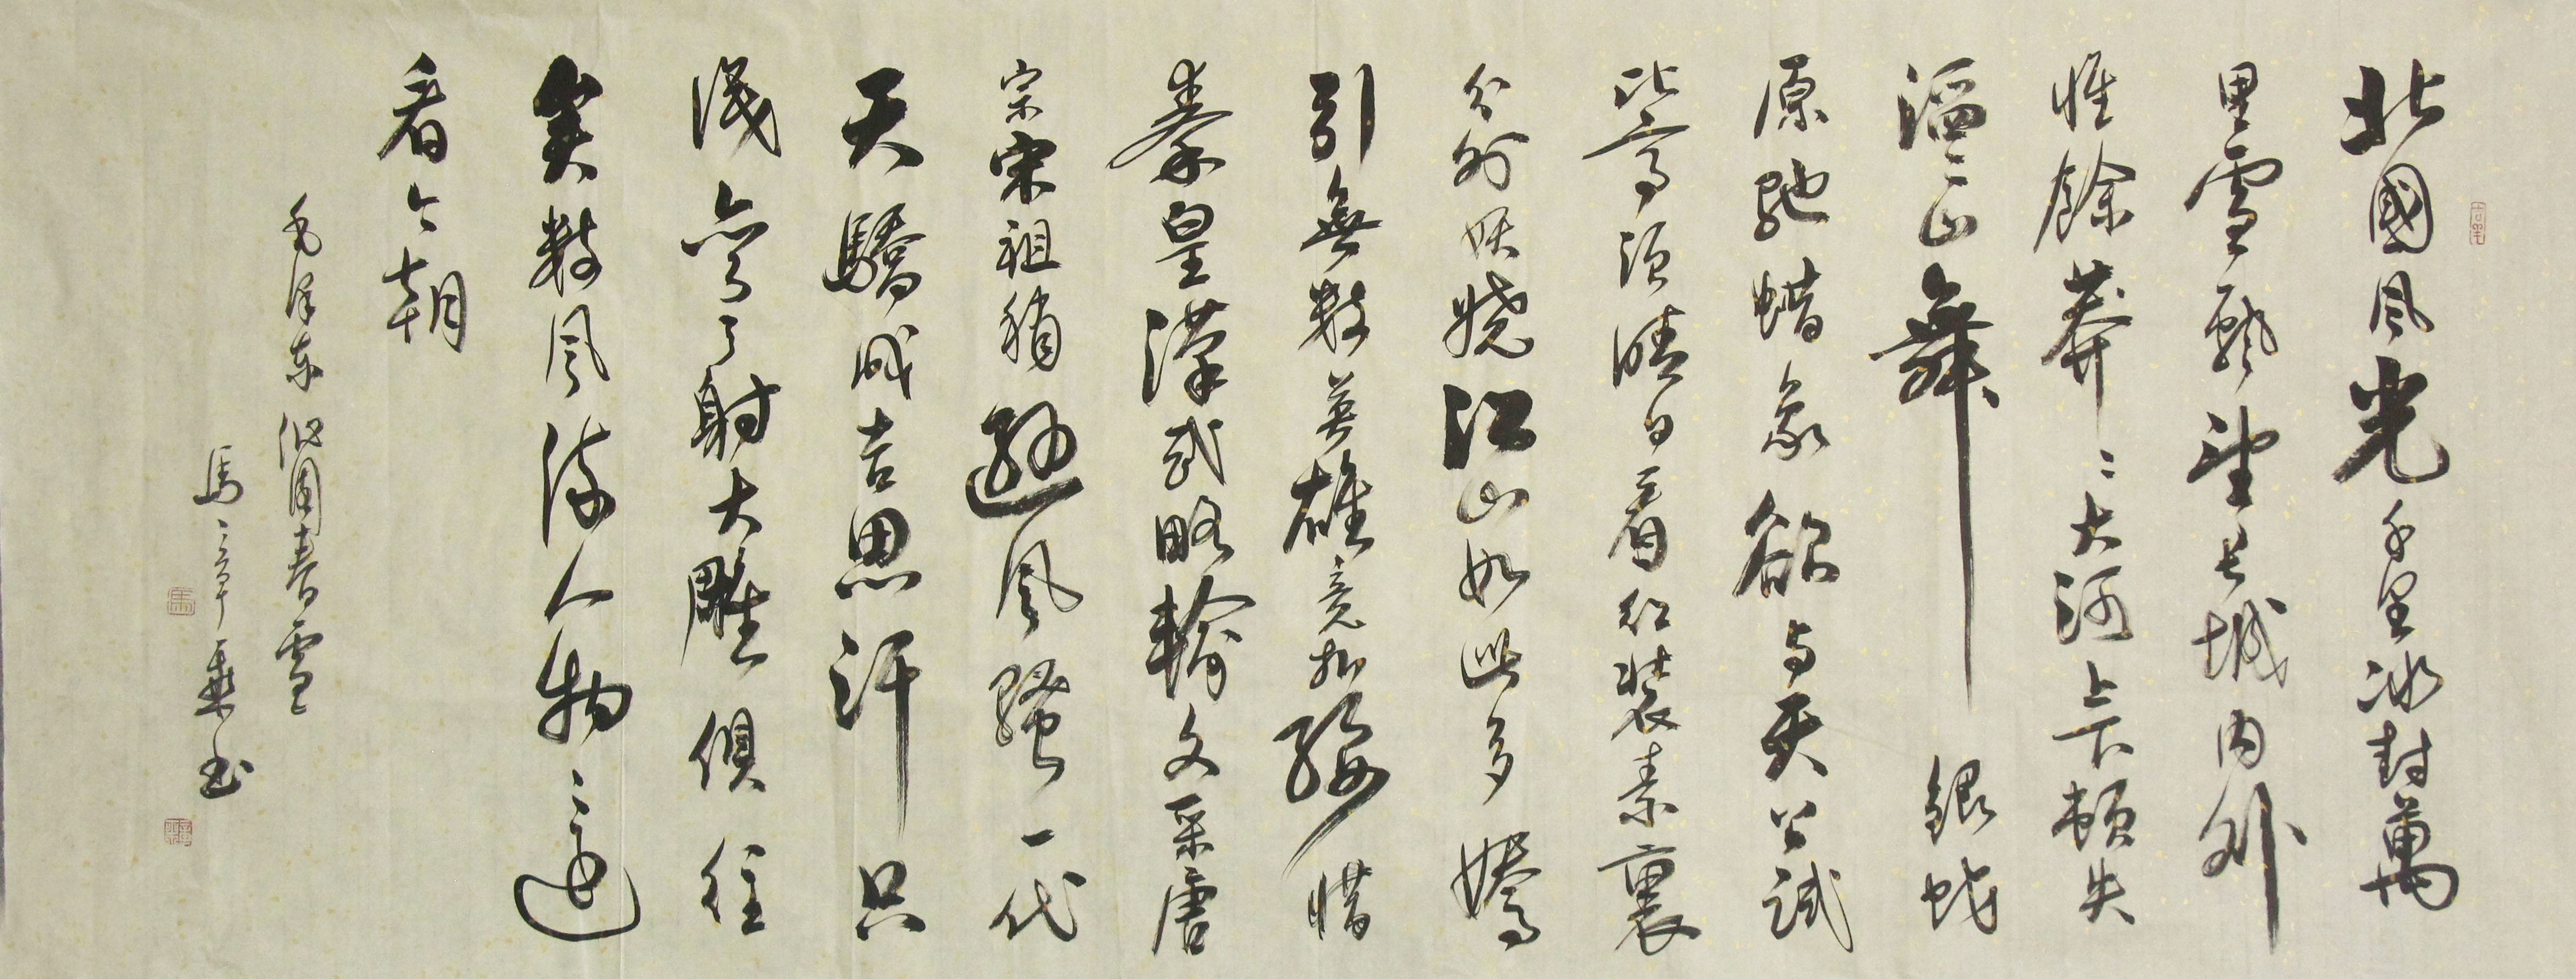 北國風光千里冰封萬
里雪飄望長城内外
惟餘莽〻大河上下頓失
滔〻山舞銀蛇
原馳蠟象欲与天公試
比高須晴日看红装素裹
分外妖嬈江山如此多嬌
引無数英雄竞折腰惜
秦皇漢武略輸文采唐
宗宋祖稍遜風騷一代
天驕成吉思汗只
識彎弓射大雕俱往
矣数風流人物還
看今朝
毛泽东沁園春雪
馬章乘书
馬